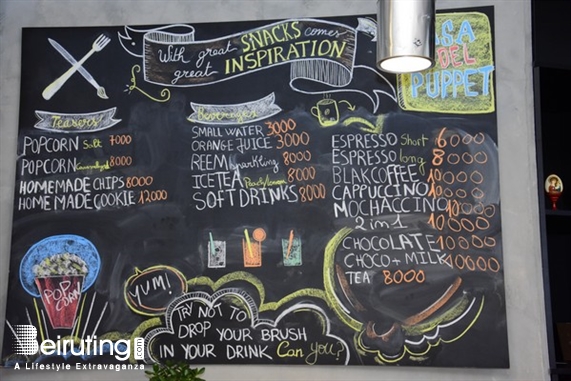 With great SNACKS comes
great INSPIRATION
CASA
DEL
PUPPET
Teasers
POPCORN Salt 7000
POPCORN Caramelized 8000
HOMEMADE CHIPS 8000
HOME MADE COOKIE 12,000
Beverages
SMALL WATER 3000
ORANGE JUICE 3000
REEM Sparkling 8000
ICE TEA Peach/Lemon 8000
SOFT DRINKS 8000
ESPRESSO Short 6000
ESPRESSO long 8000
BLAK COFFEE 10000
CAPPUCCINO 10000
MOCHACCINO 10000
2 in 1 10000
CHOCOLATE 10000
CHOCO + MILK 10000
TEA 8000
POP
CORN
YUM!
TRY NOT TO
DROP YOUR BRUSH
IN YOUR DRINK Can you?
Beiruting.com
A Lifestyle Extravaganza